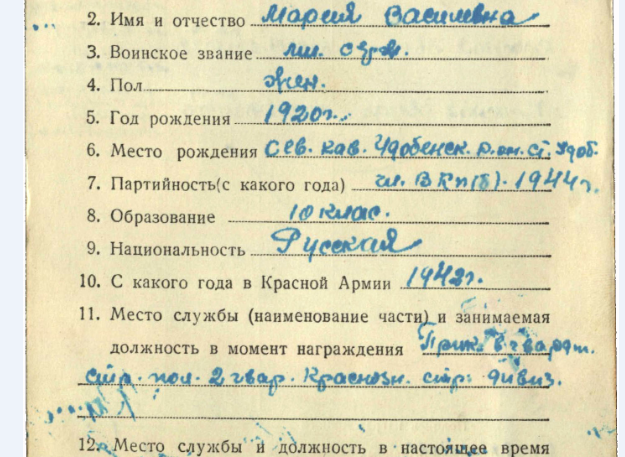 2. Имя и отчество Мария Василевна
3. Воинское звание мл. серж.
4. Пол жен.
5. Год рождения 1920г.
6. Место рождения Сев. Кав. Удобенск. р.он. ст. Удоб.
7. Партийность(с какого года) чл. ВКП(б). 1944г.
8. Образование 10 клас.
9. Национальность Русская
10. С какого года в Красной Армии 1942г.
11. Место службы (наименование части) и занимаемая
должность в момент награждения гвардт.
стр. пол. 2 гвар. Краснозн. стр. дивиз.
12. Место службы и должность в настоящее время